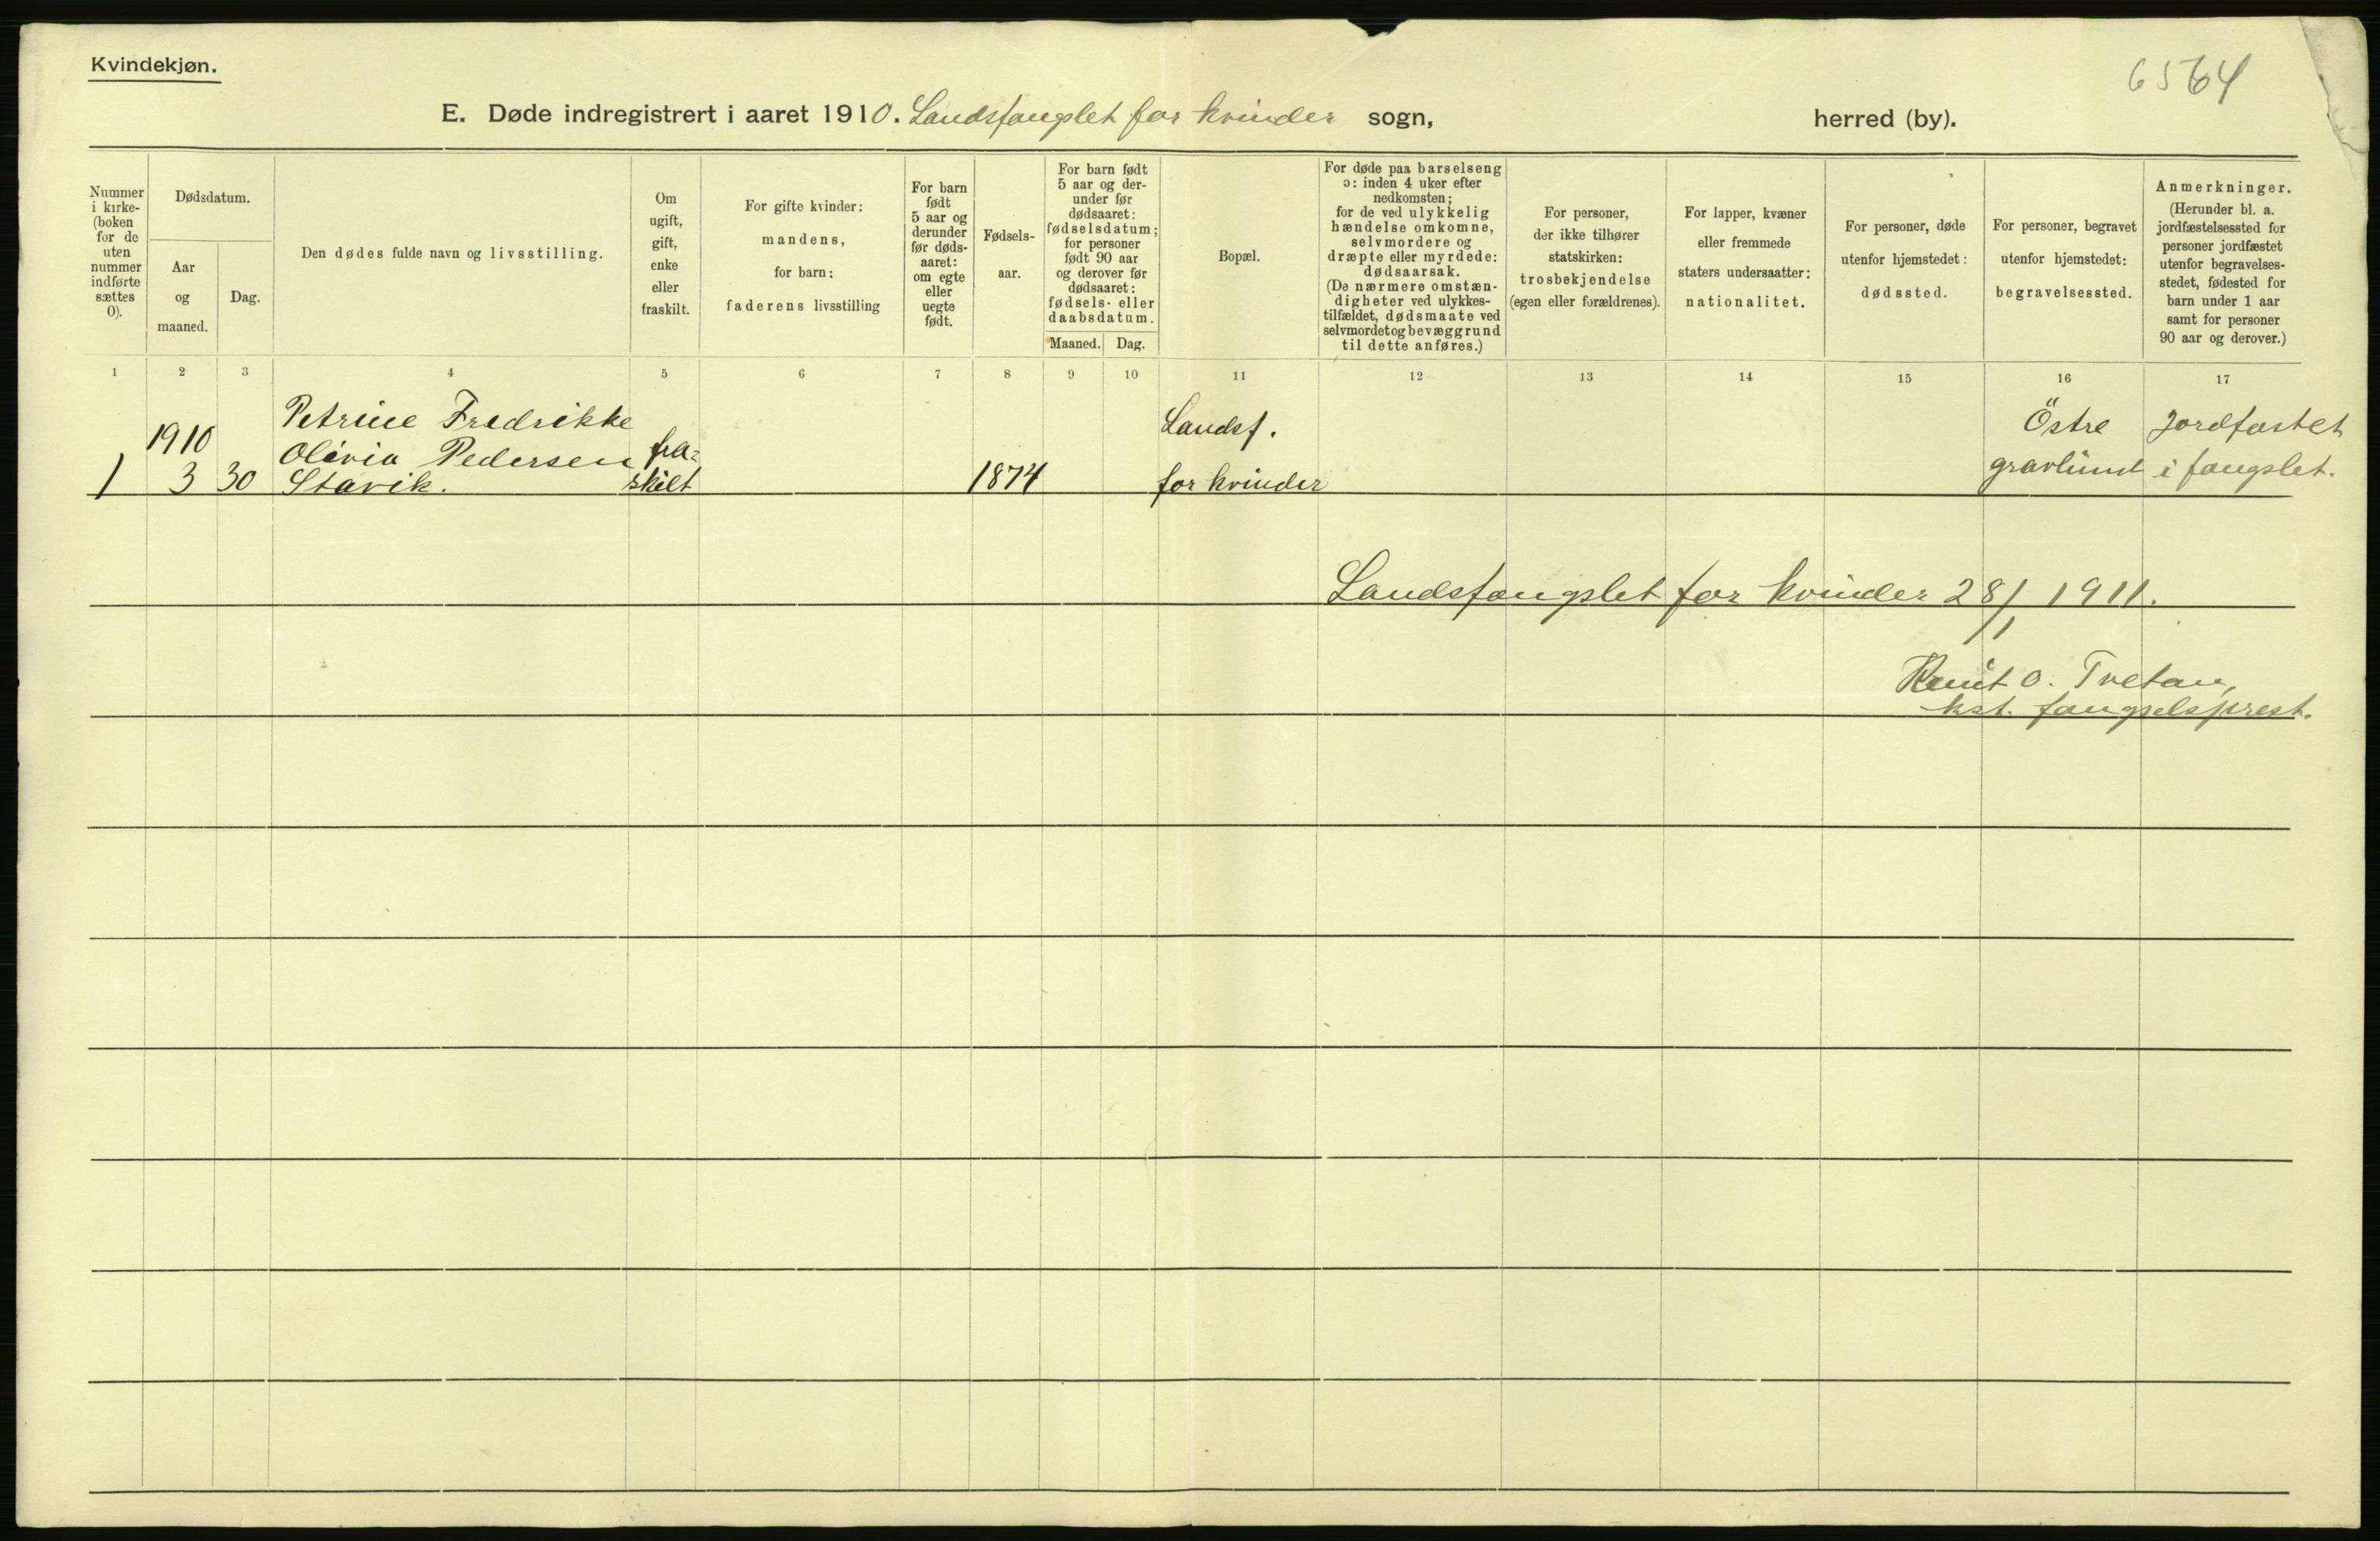 Kvindekjøn.
E. Døde indregistrert i aaret 1910. Landsfængslet for kvinder sogn, herred (by).
Nummer
i kirke-
(boken
for de
uten
nummer
indførte
sættes
0).
Dødsdatum.
Aar
og
maaned.
Dag.
Den dødes fulde navn og livsstilling.
Om
ugift,
gift,
enke
eller
fraskilt.
For gifte kvinder:
mandens,
for barn:
faderens livsstilling
For barn
født
5 aar og
derunder
før døds-
aaret:
om egte
eller
uegte
født.
Fødsels-
aar.
For barn født
5 aar og der-
under før
dødsaaret:
fødselsdatum;
for personer
født 90 aar
og derover før
dødsaaret:
fødsels- eller
daabsdatum.
Maaned. Dag.
Bopæl.
For døde paa barselseng
ɔ: inden 4 uker efter
nedkomsten;
for de ved ulykkelig
hændelse omkomne,
selvmordere og
dræpte eller myrdede:
dødsaarsak.
(De nærmere omstæn-
digheter ved ulykkes-
tilfældet, dødsmaate ved
selvmordet og bevæggrund
til dette anføres.)
For personer,
der ikke tilhører
statskirken:
trosbekjendelse
(egen eller forældrenes).
For lapper, kvæner
eller fremmede
staters undersaatter:
nationalitet.
For personer, døde
utenfor hjemstedet:
dødssted.
For personer, begravet
utenfor hjemstedet:
begravelsessted.
Anmerkninger.
(Herunder bl. a.
jordfæstelsessted for
personer jordfæstet
utenfor begravelses-
stedet, fødested for
barn under 1 aar
samt for personer
90 aar og derover.)
1 2 3 4 5 6 7 8 9 10 11 12 13 14 15 16 17
Petrine Fredrikke Landsf. Östre Jordfæstet
1910 Olivia Pedersen fra-
1 3 30 Stavik. skilt 1874 for kvinder gravlund i fængslet.
Landsfængslet for kvinder 28/1 1911.
Knut O. Tvetan,
kst. fængselsprest.